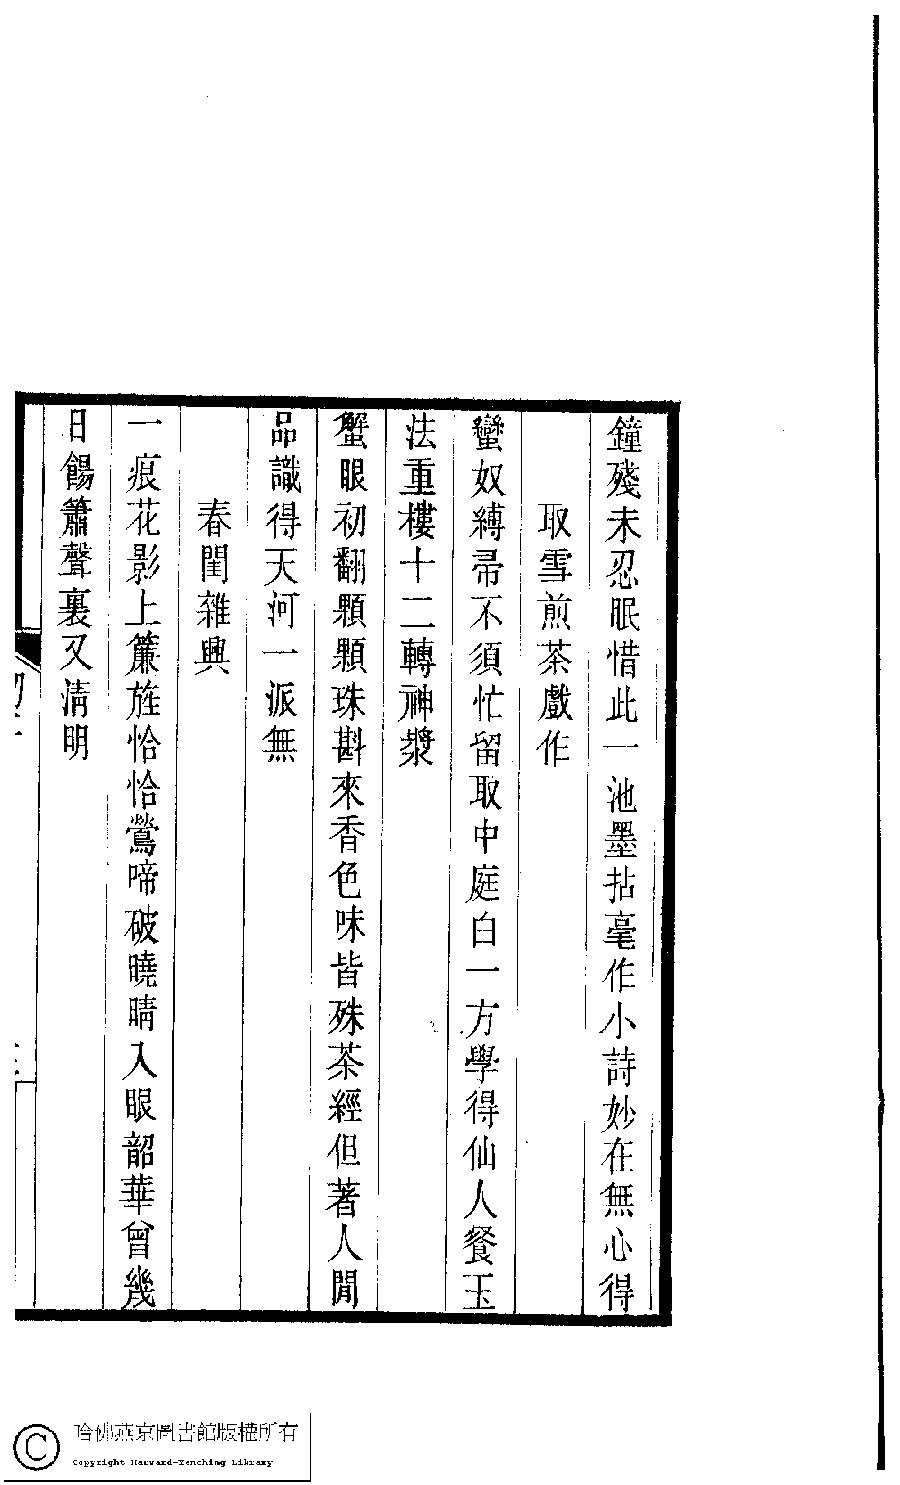 鐘殘未忍眠惜此一池墨拈毫作小詩妙在無心得
取雪煎茶戲作
蠻奴縛帚不須忙留取中庭白一方學得仙人餐玉
法重樓十二轉神漿
蟹眼初翻顆顆珠斟來香色味皆殊茶經但著人間
品識得天河一派無
春閨雜興
一痕花影上簾旌恰恰鶯啼破曉晴入眼韶華曾幾
日餳簫聲裏又清明
哈佛燕京圖書館版權所有
Copyright Harvard-Yenching Library